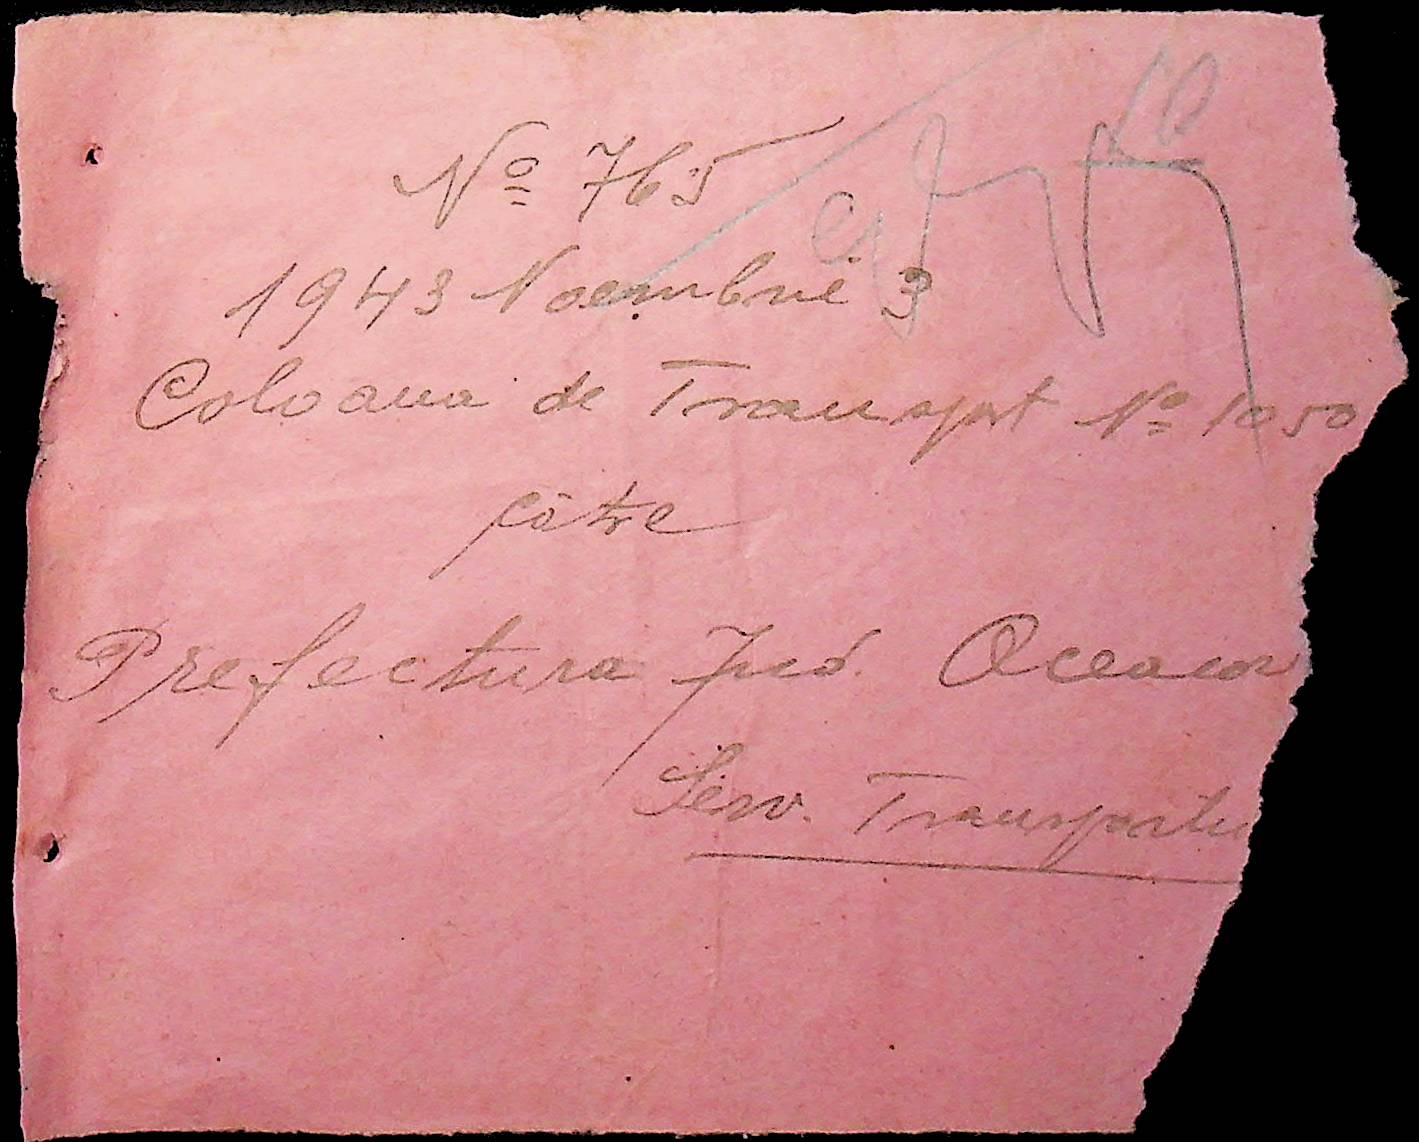 Nº 765
1943 Noembrie 3
Coloana de Transport Nº 1050
către
Prefectura Jud. Oceacov
Serv. Transportu